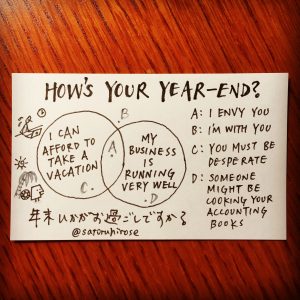 HOW'S YOUR YEAR-END?
I CAN
AFFORD TO
TAKE A
VACATION
A
MY
BUSINESS
IS
RUNNING
VERY WELL
B
C
D
A: I ENVY YOU
B: I'M WITH YOU
C: YOU MUST BE
DESPERATE
D: SOMEONE
MIGHT BE
COOKING YOUR
ACCOUNTING
BOOKS
年末いかがお過ごしですか?
@satoruhirose